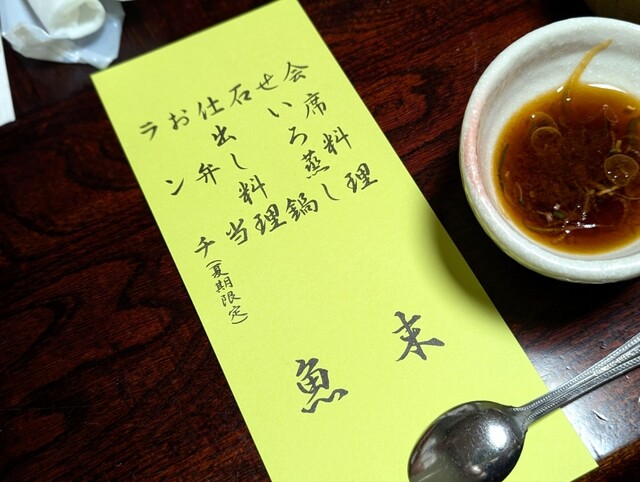 会席料理
せいろ蒸し
石鍋
仕出し料理
お弁当
ランチ(夏期限定)
魚末